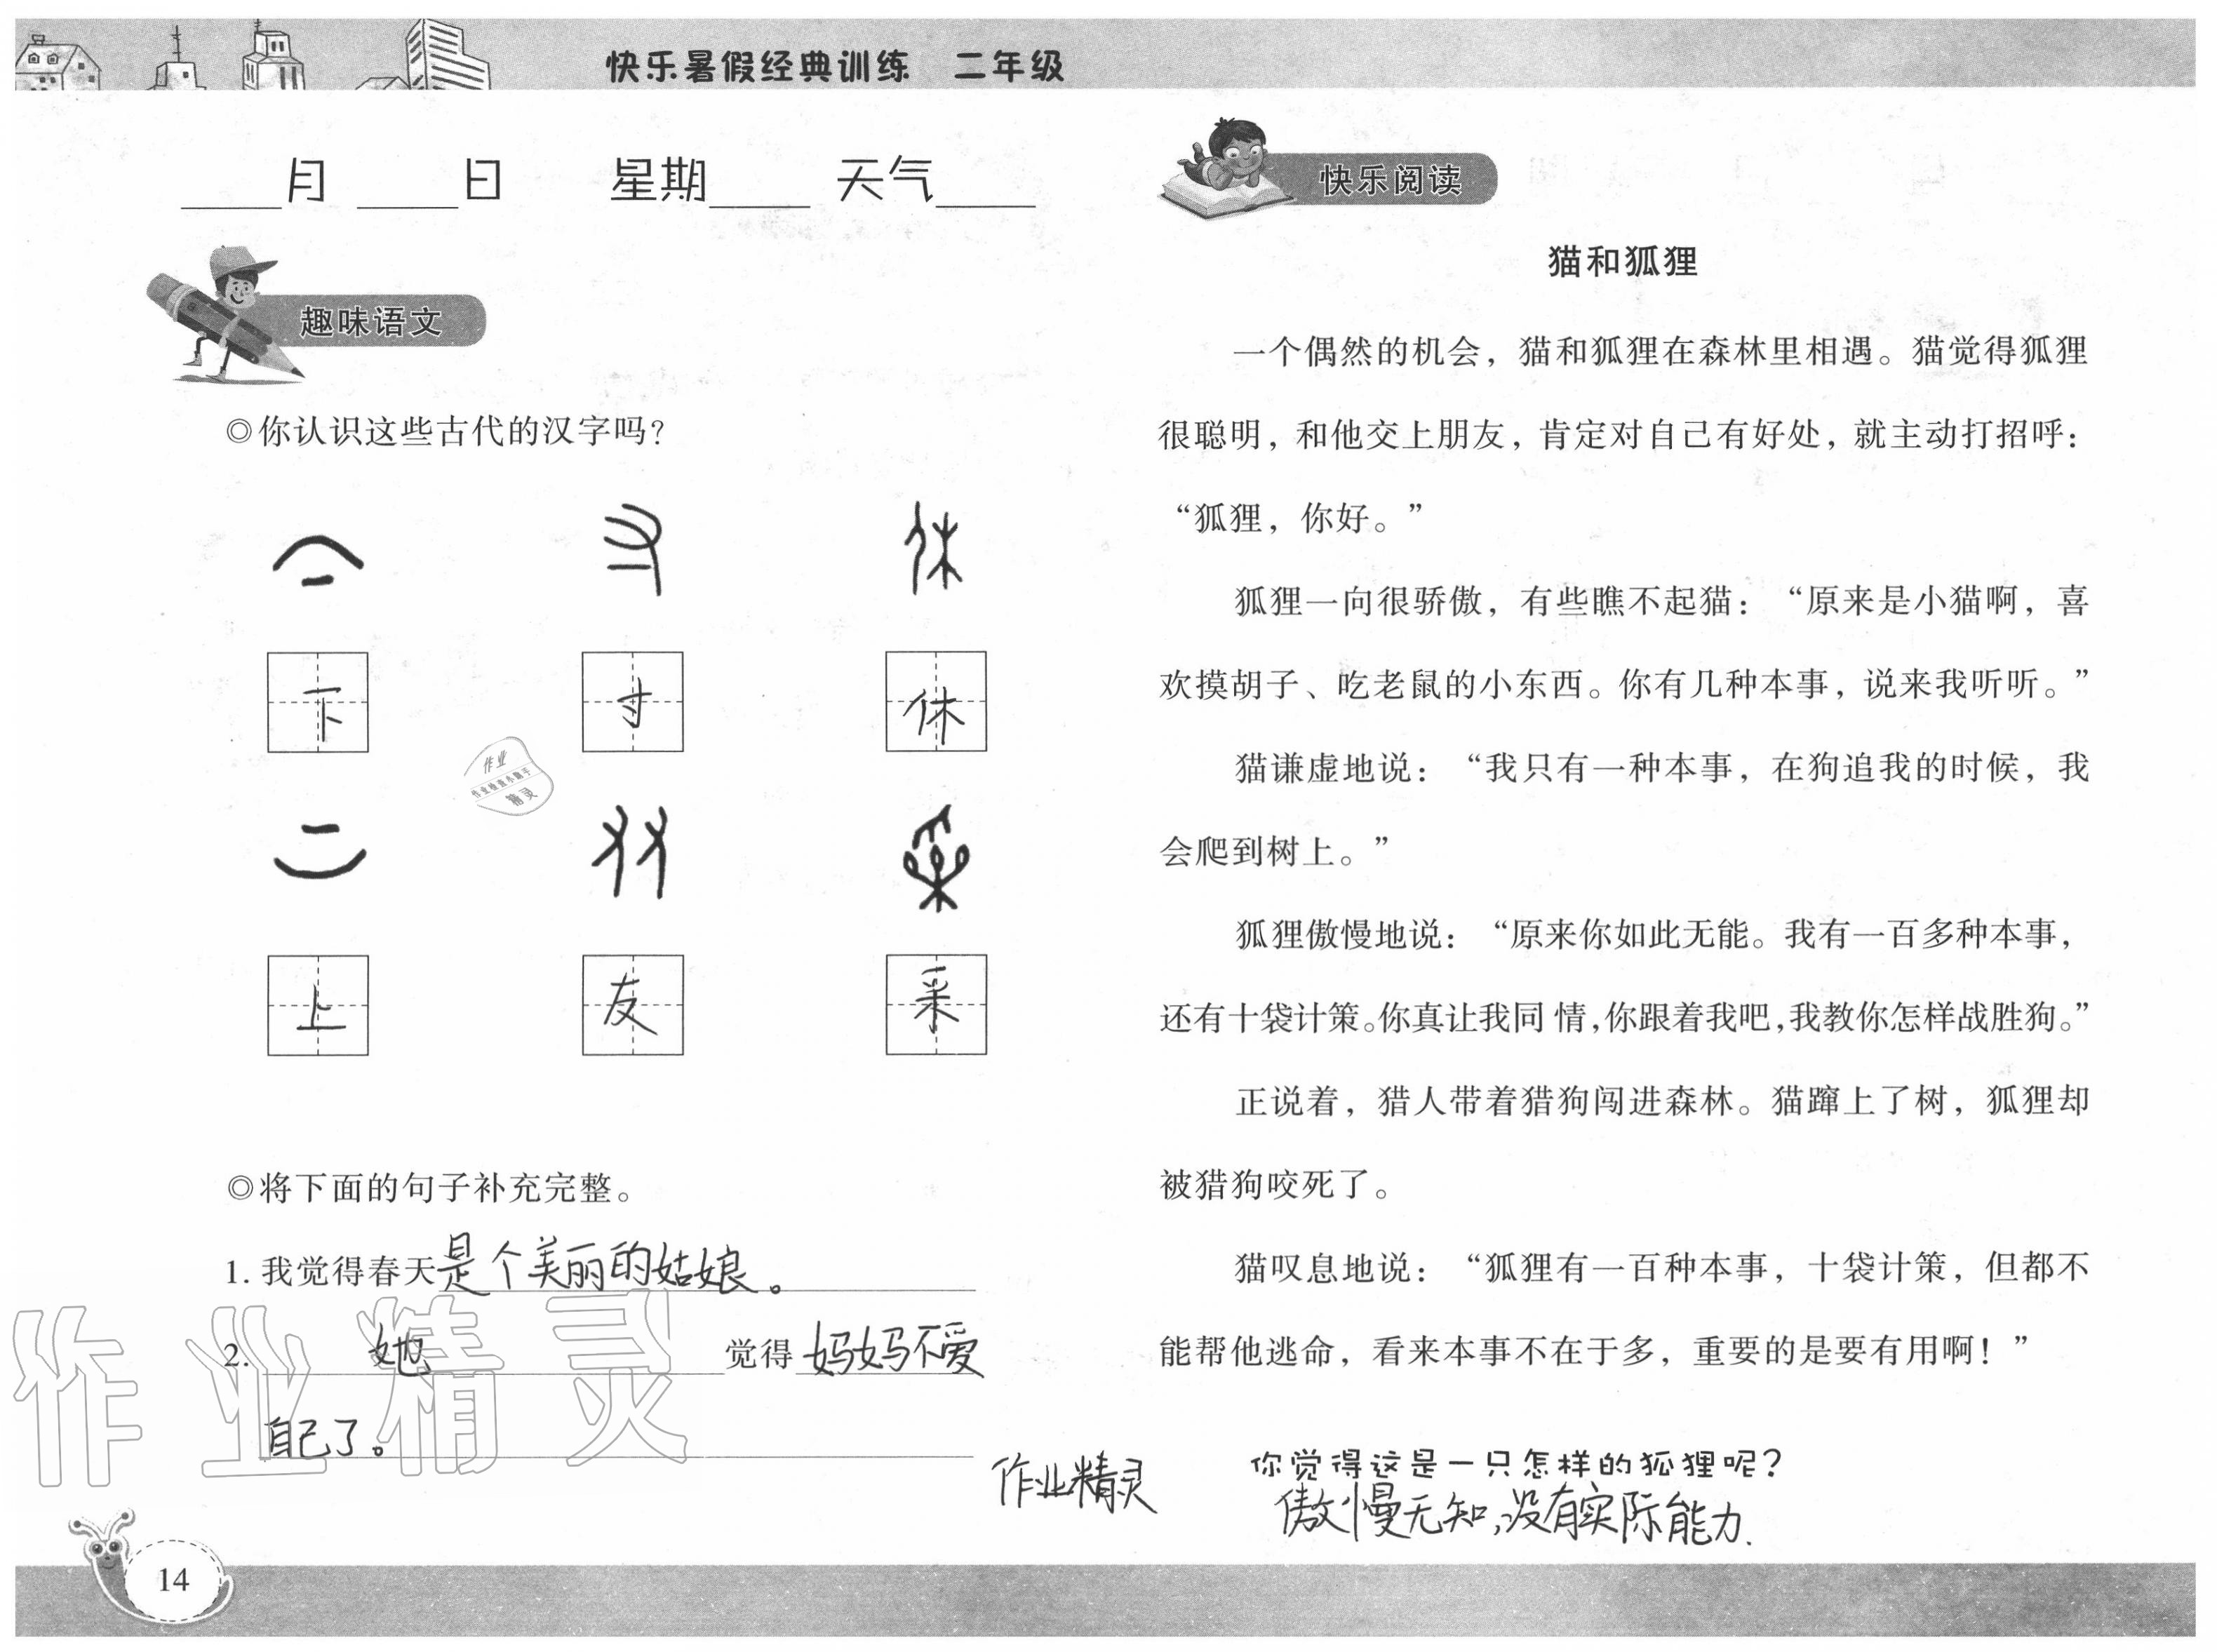 快乐暑假经典训练 二年级
月 日 星期 天气
趣味语文
◎你认识这些古代的汉字吗?
下 寸 休
作业
作业检查小助手
精灵
上 友 采
◎将下面的句子补充完整。
1. 我觉得春天是个美丽的姑娘。
2. 她 觉得 妈妈不爱
自己了。
作业精灵
作业精灵
14
快乐阅读
猫和狐狸
一个偶然的机会，猫和狐狸在森林里相遇。猫觉得狐狸
很聪明，和他交上朋友，肯定对自己有好处，就主动打招呼：
“狐狸，你好。”
狐狸一向很骄傲，有些瞧不起猫：“原来是小猫啊，喜
欢摸胡子、吃老鼠的小东西。你有几种本事，说来我听听。”
猫谦虚地说：“我只有一种本事，在狗追我的时候，我
会爬到树上。”
狐狸傲慢地说：“原来你如此无能。我有一百多种本事，
还有十袋计策。你真让我同情，你跟着我吧，我教你怎样战胜狗。”
正说着，猎人带着猎狗闯进森林。猫蹿上了树，狐狸却
被猎狗咬死了。
猫叹息地说：“狐狸有一百种本事，十袋计策，但都不
能帮他逃命，看来本事不在于多，重要的是要有用啊！”
你觉得这是一只怎样的狐狸呢?
傲慢无知,没有实际能力.